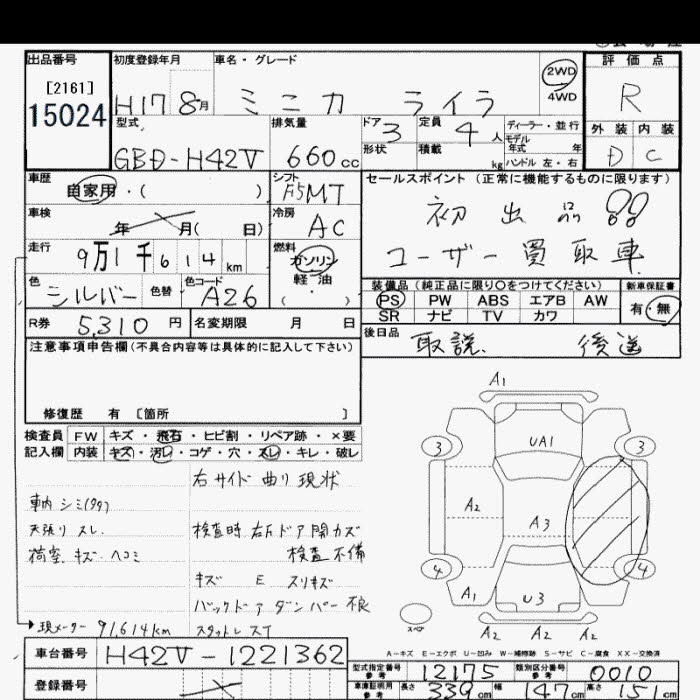 出品番号 初度登録年月 車名・グレード 評価点
[2161]
15024
H17 8月 ミニカ ライラ 2WD R
4WD
型式 排気量 ドア 定員 ディーラー・並行 外装 内装
GBD-H42V 660cc 3 4人 モデル年式 年 D C
形状 積載 kg ハンドル 左・右
車歴 シフト セールスポイント(正常に機能するものに限ります)
自家用・( ) F5MT 初出品!!
車検 冷房
年 月( 日) AC
走行 燃料 ユーザー買取車
9万1千614km ガソリン
軽油
色 色替 色コード ( )
シルバー A26
装備品(純正品に限り○をつけてください) 新車保証書
PS PW ABS エアB AW 有・無
SR ナビ TV カワ
R券 5,310円 名変期限 月 日
後日品 取説. 後送
注意事項申告欄(不具合内容等は具体的に記入して下さい)
修復歴 有 [箇所 ]
検査員 FW キズ・飛石・ヒビ割・リペア跡・×要
記入欄 内装 キズ・汚レ・コゲ・穴・スレ・キレ・破レ
右サイド曲り現状
車内シミ
天張りスレ
荷室.キズ.ヘコミ
検査時右Fドア開カズ
検査不備
キズ E スリキズ
バックドアダンパー不良
現メーター 91,614km スタットレスT
A1
3 UA1 3
A2 A3
4 4
A1 U3
スペア A2 A2 A2
A-キズ E-エクボ U-凹み W-補修跡 S-サビ C-腐食 XX-交換済
車台番号 H42V-1221362
登録番号
型式指定番号 参考 12175 類別区分番号 参考 0010
車庫証明用 参考 長さ 339cm 幅 147cm 高さ 151